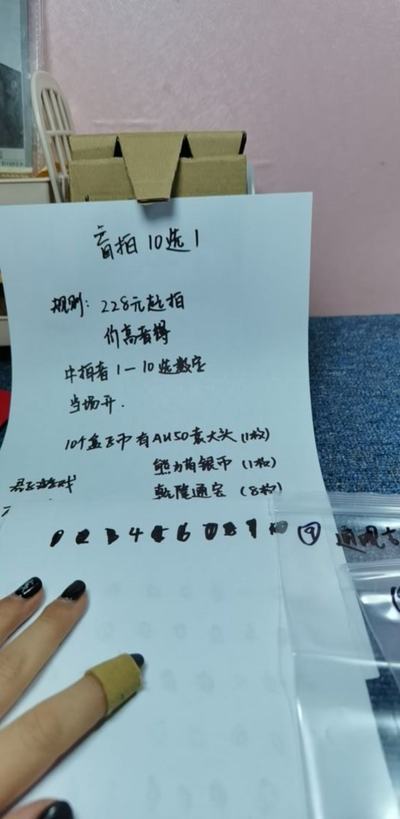 盲拍10选1
规则: 228元起拍
价高者得
中拍者1—10选数字
当场开.
10个盒币有AU50袁大头(1枚)
熊猫银币(1枚)
乾隆通宝(8枚)
1 2 3 4 5 6 7 8 9 10
⑨